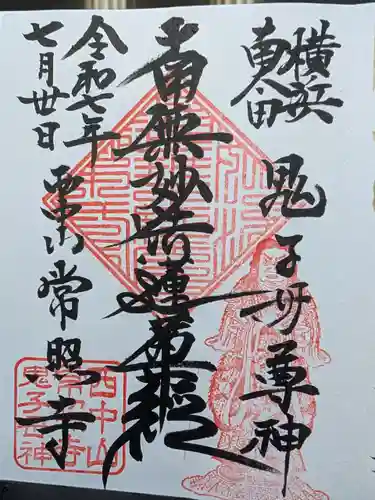 横浜
南太田
鬼子母尊神
南無妙法蓮華経
令和七年
七月卅日
西中山常照寺
西中山
常照寺
鬼子母神